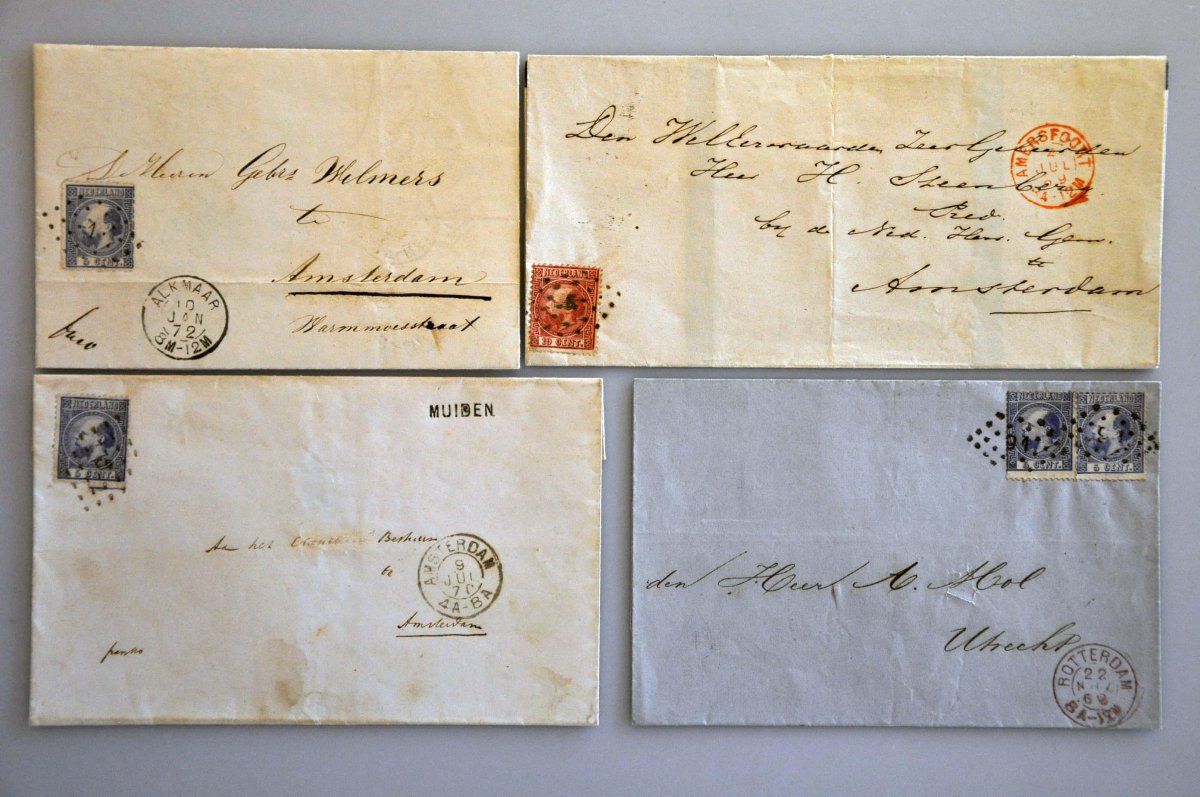 De Heeren Gebrs Welmers
te
Amsterdam
Warmmoesstraat
NEDERLAND
5 CENT.
ALKMAAR
10
JAN
72
8M-12M
Den Weleerwaarden Zeer Geleerden
Heer H. Steenberg
Pred.
bij de Ned. Herv. Gem.
te
Amsterdam
AMERSFOORT
JUL
NEDERLAND
10 CENT.
NEDERLAND
5 CENT.
MUIDEN
Aan het Bestuur
te
Amsterdam
franko
AMSTERDAM
9
JUL
70
4A-8A
NEDERLAND
5 CENT.
NEDERLAND
5 CENT.
den Heer A. Mol
Utrecht
ROTTERDAM
22
69
8A-12M